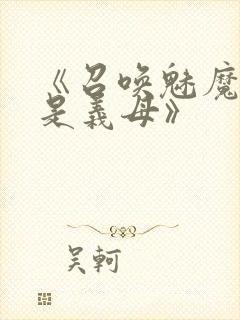 《召唤魅魔
是義母》
吴軻